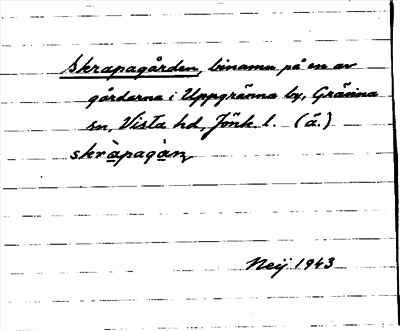 Skrapagården, binamn på en av
gårdarna i Uppgränna by, Gränna
sn, Vista hd, Jönk. l. (ä.)
skràpagàn,
Neij 1943